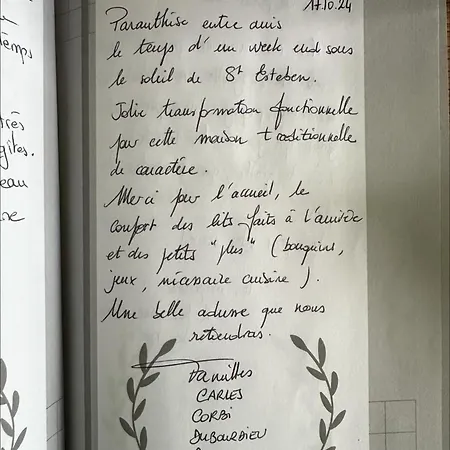 17.10.24
Temps
Paranthèse entre amis
le temps d'un week end sous
le soleil de St Esteben.
Jolie transformation fonctionnelle
très
pour cette maison traditionnelle
gîtes.
de caractère.
eau
Merci pour l'accueil, le
ne
confort des lits faits à l'arrivée
et des petits "plus" (bouquins,
jeux, nécessaire cuisine).
Une belle adresse que nous
retiendrons.
Familles
CARLES
CORBI
DUBOURDIEU